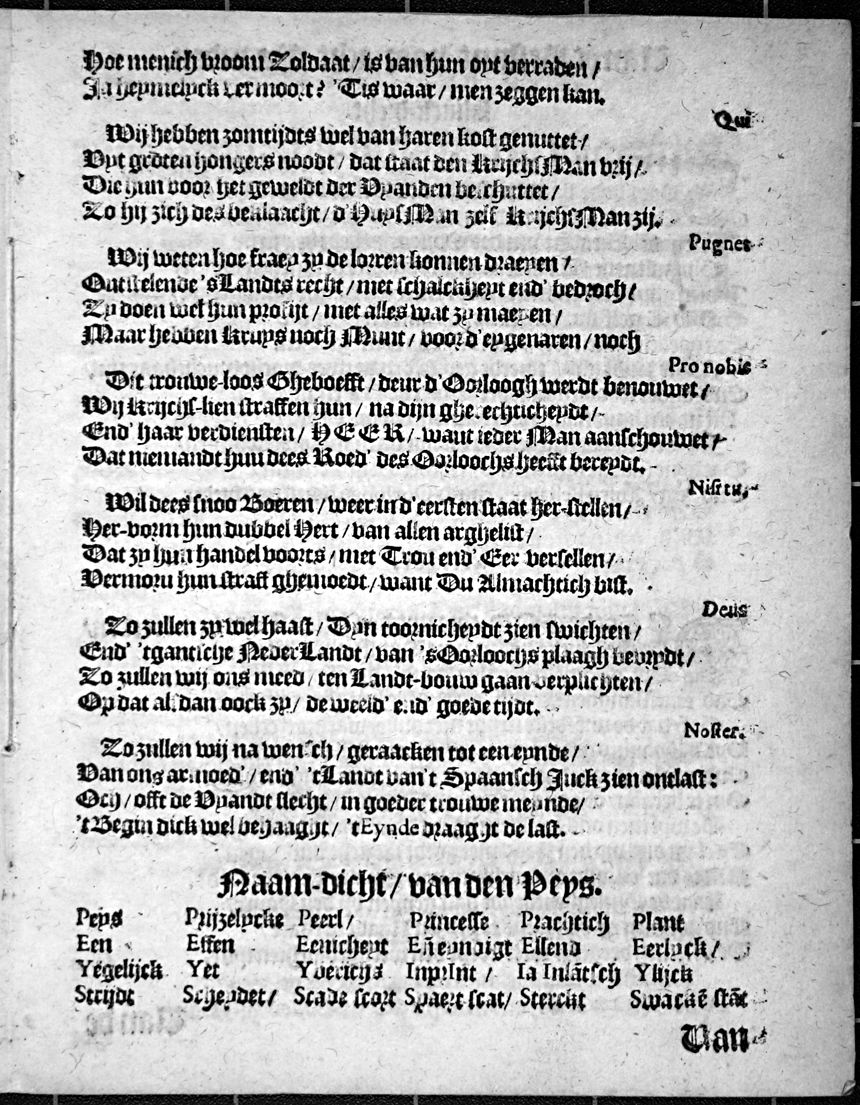 Hoe menich vroom Zoldaat / is van hun oyt verraden /
Ja heymelyck vermoort? 'Tis waar / men zeggen kan.
Qui
Wij hebben zomtijdts wel van haren kost genuttet /
Vyt groten hongers noodt / dat staat den KrijchsMan vrij /
Die hun voor het geweldt der Vyanden beschuttet /
Zo hij zich des beklaacht / d'HuysMan zelf KrijchsMan zij.
Pugnet
Wij weten hoe fraey zy de lorren konnen draeyen /
Ontstelende 'sLandts recht / met schalckheyt end' bedroch /
Zy doen wel hun profijt / met alles wat zy maeyen /
Maar hebben Kruys noch Munt / voor d'eygenaren / noch
Pro nobis
Dit trouwe-loos Gheboefft / deur d'Oorloogh werdt benouwet /
Wij Krijchs-lien straffen hun / na dijn gherechticheydt /
End' haar verdiensten / HEER / want ieder Man aanschouwet /
Dat niemandt hun dees Roed' des Oorloochs heefft bereydt.
Nisi tu,
Wil dees snoo Boeren / weer in d'eersten staat her-stellen /
Her-vorm hun dubbel Hert / van allen arghelist /
Dat zy hun handel voorts / met Trou end' Eer versellen /
Vermorw hun straff ghemoedt / want Du Almachtich bist.
Deus
Zo zullen zy wel haast / Dyn toornicheydt zien swichten /
End' 'tgantsche NederLandt / van 'sOorloochs plaagh bevrydt /
Zo zullen wij ons meed / ten Landt-bouw gaan verplichten /
Op dat al-dan oock zy / de weeld' end' goede tijdt.
Noster.
Zo zullen wij na wensch / geraacken tot een eynde /
Van ons armoed' / end' 'tLandt van't Spaansch Juck zien ontlast:
Och / offt de Vyandt slecht / in goeder trouwe meynde /
'tBegin dick wel behaaght / 'tEynde draaght de last.
Naam-dicht / van den Peys.
Peys Prijzelycke Peerl / Princesse Prachtich Plant
Een Effen Eenicheyt Eñ eynoigt Ellend Eerlyck /
Yegelijck Yet Yverichs Inprint / Ia Inlãtsch Ylijck
Strijdt Scheydet / Scade scort Spaert scat / Sterckt Swackẽ stãt
Van